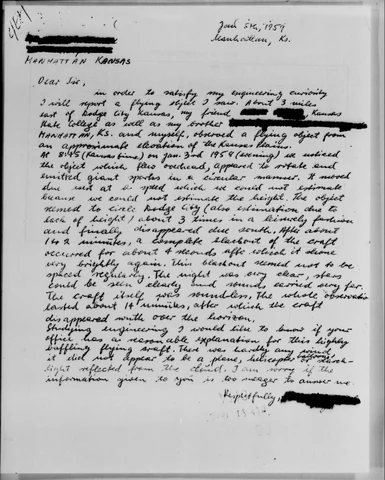 Jan 5th, 1959
Manhattan, Ks.
MANHATTAN KANSAS
Dear Sir,
in order to satisfy my engineering curiosity
I will report a flying object I saw. About 3 miles
east of Dodge City Kansas, my friend Kansas
State College as well as my brother
MANHATTAN, KS. and myself, observed a flying object from
an approximate elevation of the Kansas Plains.
At 8:45 (Kansas time) on Jan. 3rd 1959 (evening) we noticed
the object which, flew overhead, appeared to rotate and
emitted giant sparks in a circular manner. It moved
due west at a speed which we could not estimate
because we could not estimate the height. The object
seemed to circle Dodge City (also estimation due to
lack of height) about 3 times in a leisurely fashion
and finally disappeared due south. After about
1 to 2 minutes, a complete blackout of the craft
occurred for about 4 seconds after which it shone
very brightly again. This blackout seemed not to be
spaced regularly. The night was very clear, stars
could be seen clearly and sounds carried very far.
The craft itself was soundless. The whole observation
lasted about 14 minutes, after which the craft
disappeared south over the horizon.
Studying engineering I would like to know if your
office has a reasonable explanation for this highly
baffling flying craft. There was hardly any wind
it did not appear to be a plane, helicopter or search-
light reflected from the cloud. I am sorry if the
information given to you is too meager to answer me.
Respectfully,